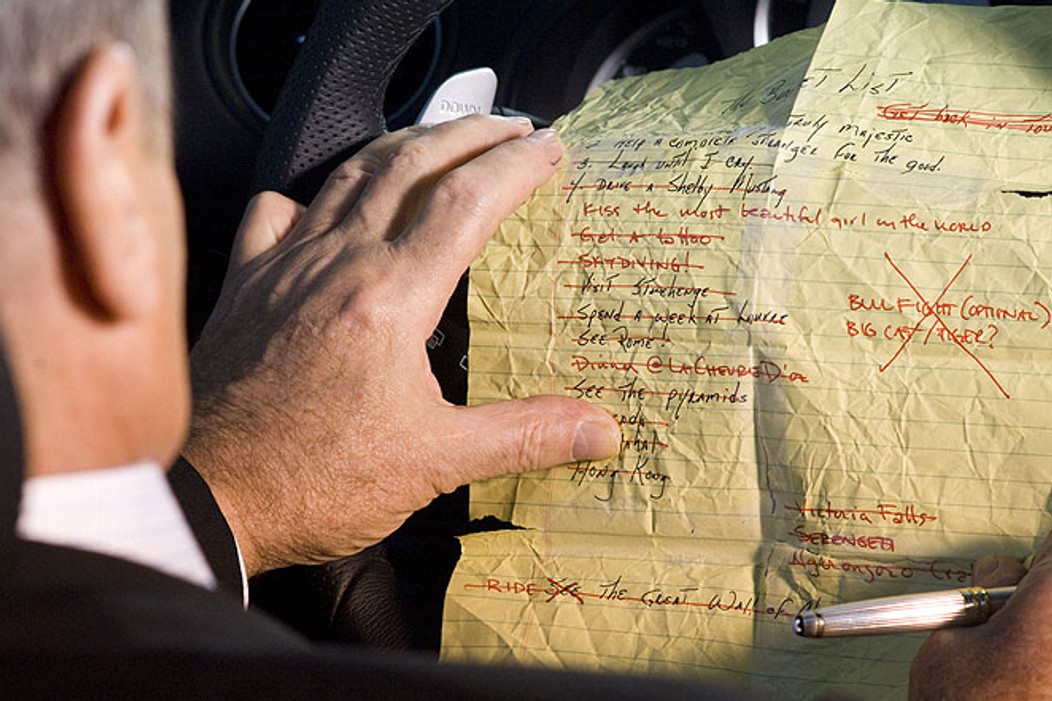 DOWN
The Bucket List
Get back in
truly majestic
2. Help a complete stranger for the good.
3. Laugh until I cry
4. Drive a Shelby Mustang
Kiss the most beautiful girl in the world
Get a tattoo
SKYDIVING!
Visit Stonehenge
Spend a week at Louvre
See Rome!
Dinner @ LA CHEVRE D'or
See the pyramids
Hong Kong
BULL FIGHT (OPTIONAL)
BIG CAT/TIGER?
Victoria Falls
SERENGETI
Ngorongoro
RIDE See The Great Wall of